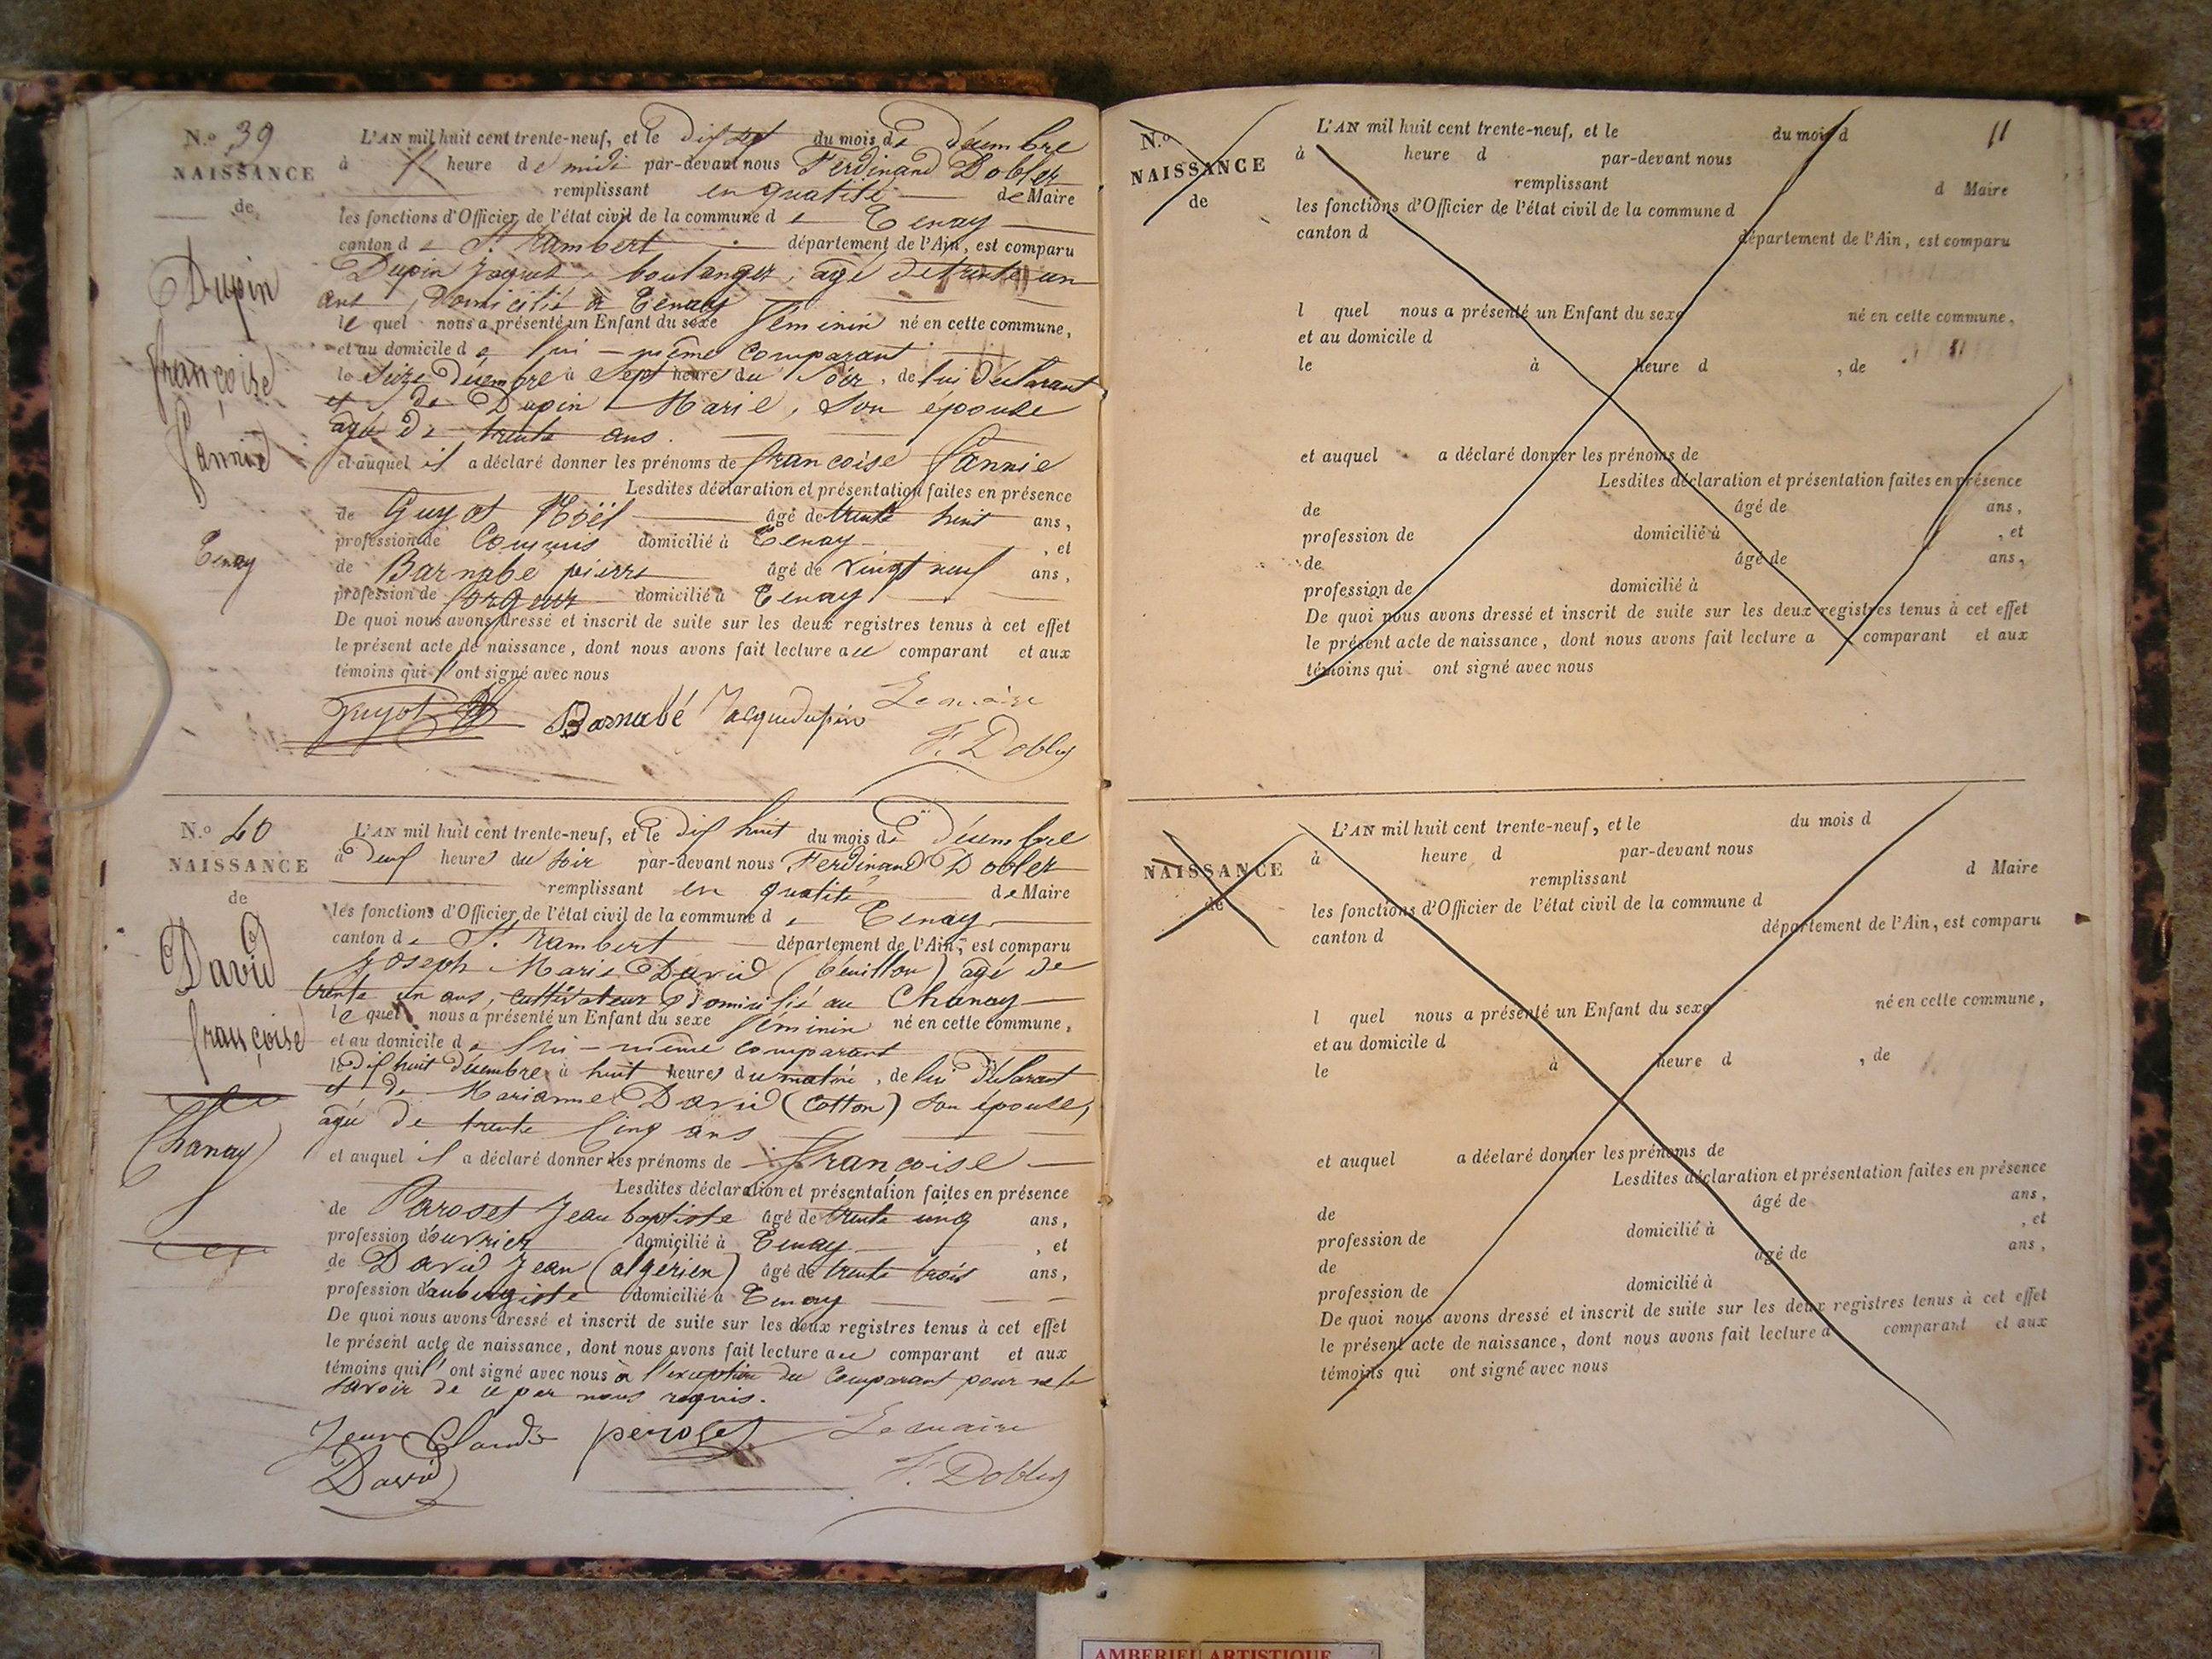 N.o 39
NAISSANCE
de
Dupin
françoise
fannie
Tenay
L'AN mil huit cent trente-neuf, et le dix sept du mois de Décembre
à heure de midi par-devant nous Ferdinand Dobler
remplissant en qualité de Maire
les fonctions d'Officier de l'état civil de la commune de Tenay
canton de St. Rambert département de l'Ain, est comparu
Dupin Jaques, boulanger, agé de trente un
ans, Domicilié à Tenay
le quel nous a présenté un Enfant du sexe féminin né en cette commune,
et au domicile de lui-même comparant
le seize Décembre à sept heures du soir, de lui déclarant
et de Dupin Marie, son épouse
agée de trente ans.
et auquel il a déclaré donner les prénoms de françoise fannie
Lesdites déclaration et présentation faites en présence
de Guyot Noël âgé de trente huit ans,
profession de Commis domicilié à Tenay , et
de Barnabé pierre âgé de vingt neuf ans,
profession de forgeur domicilié à Tenay
De quoi nous avons dressé et inscrit de suite sur les deux registres tenus à cet effet
le présent acte de naissance, dont nous avons fait lecture au comparant et aux
témoins qui l'ont signé avec nous
Guyot Barnabé Jacque dupin Le maire
F. Dobler
N.o 40
NAISSANCE
de
David
françoise
Chanay
L'AN mil huit cent trente-neuf, et le dix huit du mois de Décembre
à deux heures du soir par-devant nous Ferdinand Dobler
remplissant en qualité de Maire
les fonctions d'Officier de l'état civil de la commune de Tenay
canton de St. Rambert département de l'Ain, est comparu
Joseph Marie David agé de
trente un ans, cultivateur domicilié au Chanay
le quel nous a présenté un Enfant du sexe féminin né en cette commune,
et au domicile de lui-même comparant
le dix huit décembre à huit heures du matin, de lui déclarant
et de Marianne David (Cotton) son épouse,
agée de trente cinq ans
et auquel il a déclaré donner les prénoms de françoise
Lesdites déclaration et présentation faites en présence
de Paroset Jean baptiste âgé de trente cinq ans,
profession d'ouvrier domicilié à Tenay , et
de David Jean (algérien) âgé de trente trois ans,
profession d'aubergiste domicilié à Tenay
De quoi nous avons dressé et inscrit de suite sur les deux registres tenus à cet effet
le présent acte de naissance, dont nous avons fait lecture au comparant et aux
témoins qui l'ont signé avec nous à l'exception du Comparant pour ne le
savoir de ce par nous requis.
Jean Claude peroset Le maire
David F. Dobler
11
N.o
NAISSANCE
de
L'AN mil huit cent trente-neuf, et le du mois d
à heure d par-devant nous
remplissant d Maire
les fonctions d'Officier de l'état civil de la commune d
canton d département de l'Ain, est comparu
l quel nous a présenté un Enfant du sexe né en cette commune,
et au domicile d
le à heure d , de
et auquel a déclaré donner les prénoms de
Lesdites déclaration et présentation faites en présence
de âgé de ans,
profession de domicilié à , et
de âgé de ans,
profession de domicilié à
De quoi nous avons dressé et inscrit de suite sur les deux registres tenus à cet effet
le présent acte de naissance, dont nous avons fait lecture a comparant et aux
témoins qui ont signé avec nous
NAISSANCE
de
L'AN mil huit cent trente-neuf, et le du mois d
à heure d par-devant nous
remplissant d Maire
les fonctions d'Officier de l'état civil de la commune d
canton d département de l'Ain, est comparu
l quel nous a présenté un Enfant du sexe né en cette commune,
et au domicile d
le à heure d , de
et auquel a déclaré donner les prénoms de
Lesdites déclaration et présentation faites en présence
de âgé de ans,
profession de domicilié à , et
de âgé de ans,
profession de domicilié à
De quoi nous avons dressé et inscrit de suite sur les deux registres tenus à cet effet
le présent acte de naissance, dont nous avons fait lecture a comparant et aux
témoins qui ont signé avec nous
AMBERIEU ARTISTIQUE